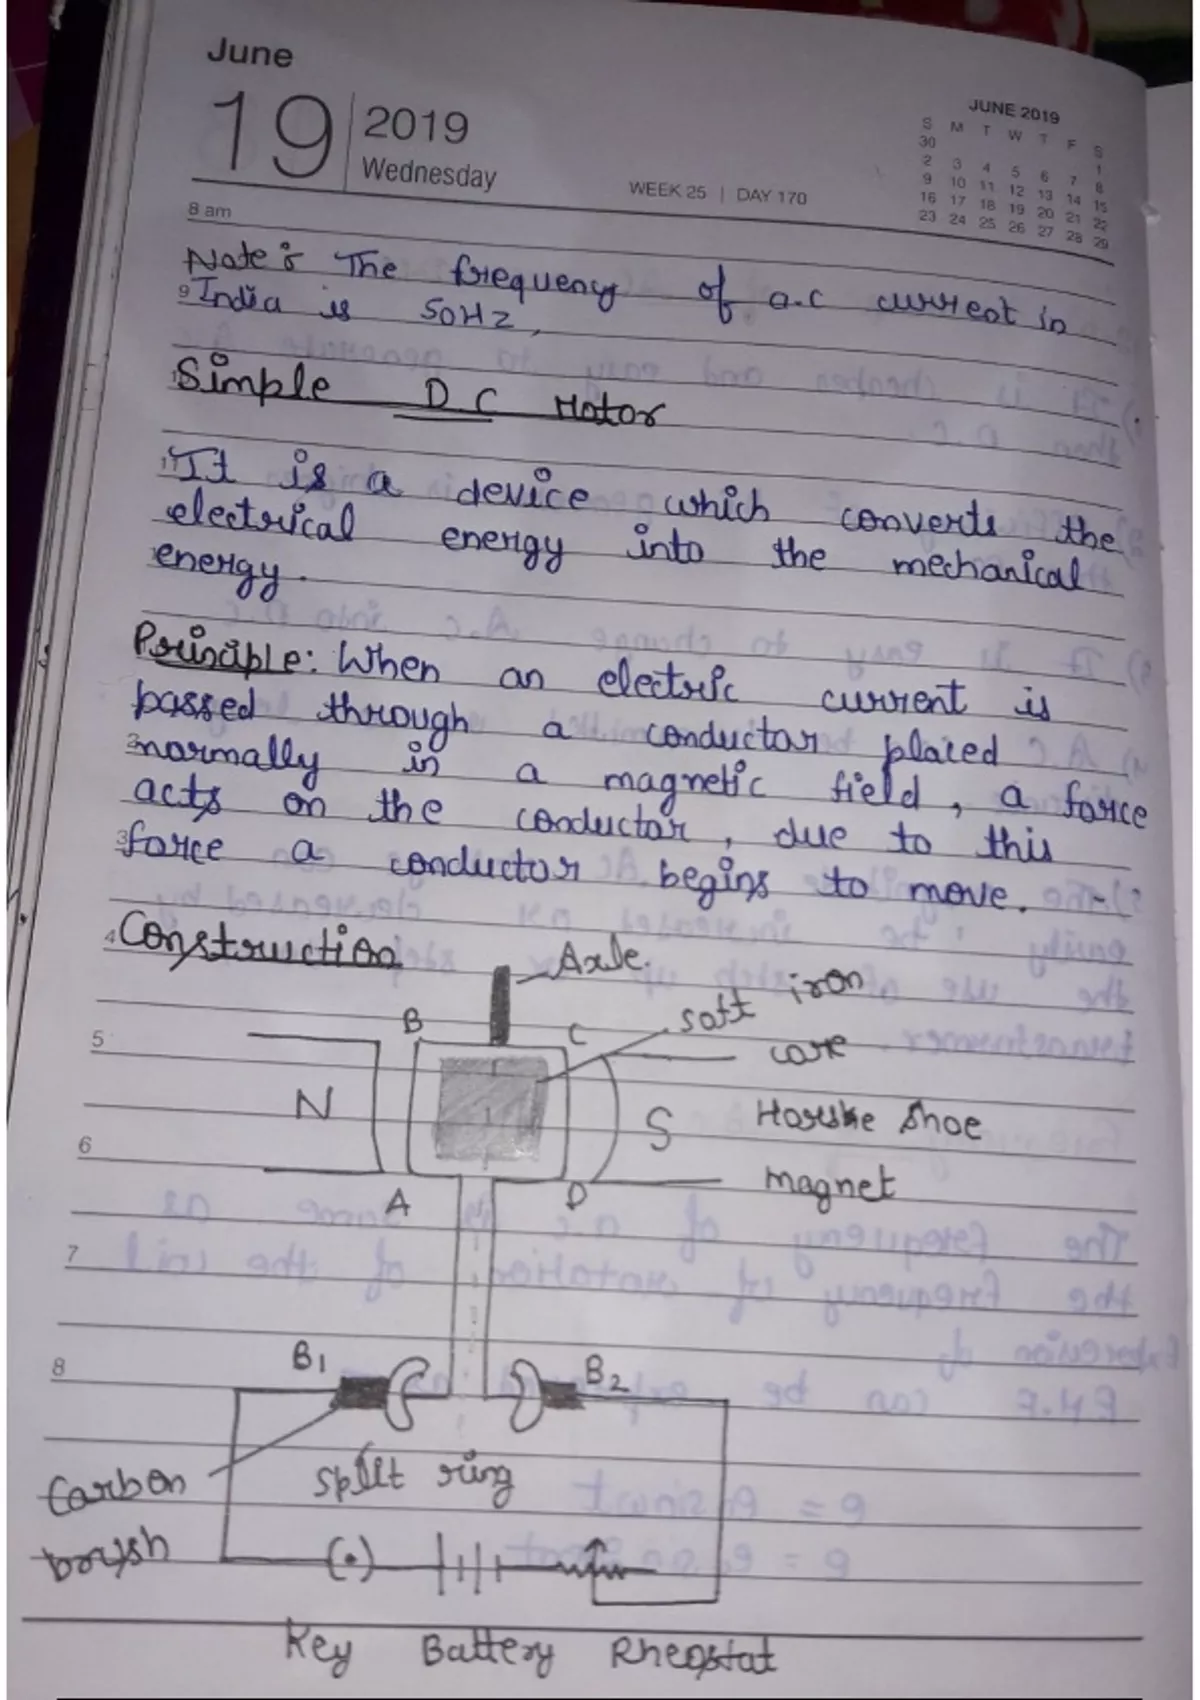 June
19 2019
Wednesday
WEEK 25 | DAY 170
JUNE 2019
S M T W T F S
30 1
2 3 4 5 6 7 8
9 10 11 12 13 14 15
16 17 18 19 20 21 22
23 24 25 26 27 28 29
8 am
Note : The frequency of a.c current in
9 India is 50Hz,
Simple DC Motor
11 It is a device which converts the
electrical energy into the mechanical
energy.
Principle: When an electric current is
passed through a conductor placed
2 normally in a magnetic field, a force
acts on the conductor, due to this
3 force a conductor begins to move.
4 Construction
Axle.
B C soft iron
5 core
N S Horshe shoe
6 magnet
A D
7
8 B1 B2
Carbon split ring
brush (•)
Key Battery Rheostat